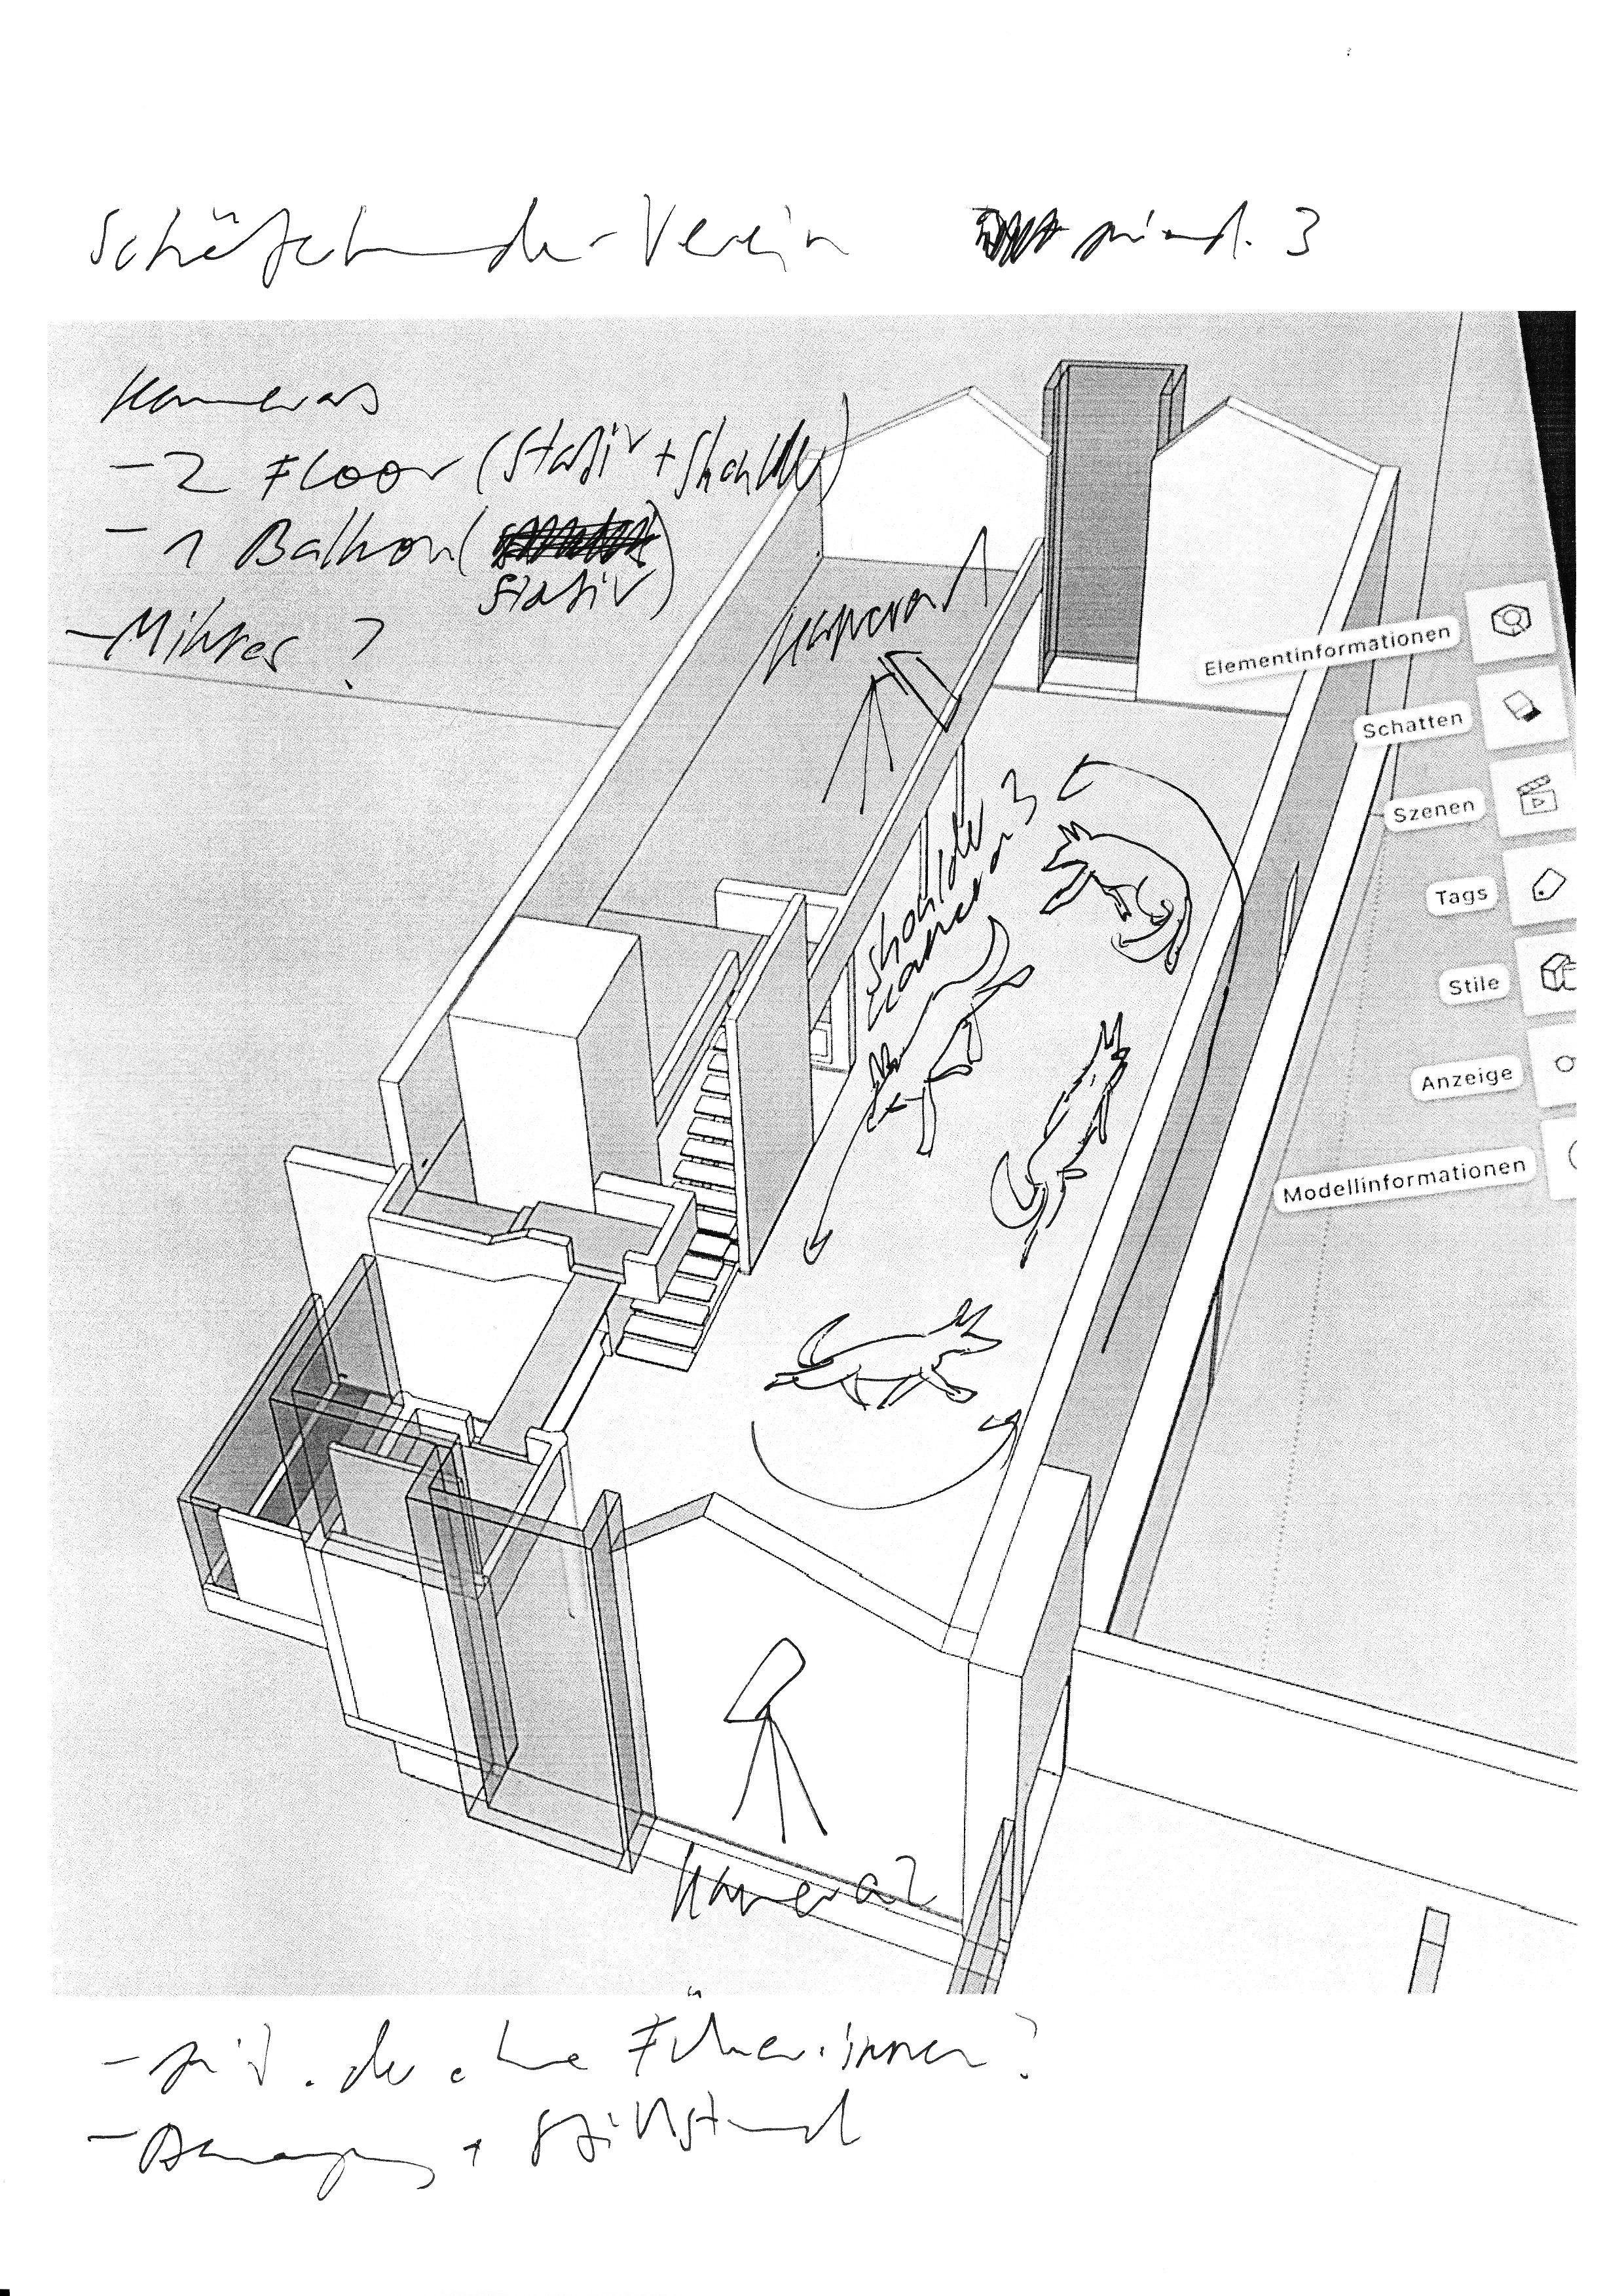 Schäferhunde-Verein mind. 3
Kameras
- 2 Floor (Stativ + Shoulder)
- 1 Balkon (
Stativ)
- Mikros ?
Kamera 1
Shoulder
Kamera 3
Elementinformationen
Schatten
Szenen
Tags
Stile
Anzeige
Modellinformationen
Kamera 2
- ohne Führer:innen?
- Bewegung + Stillstand